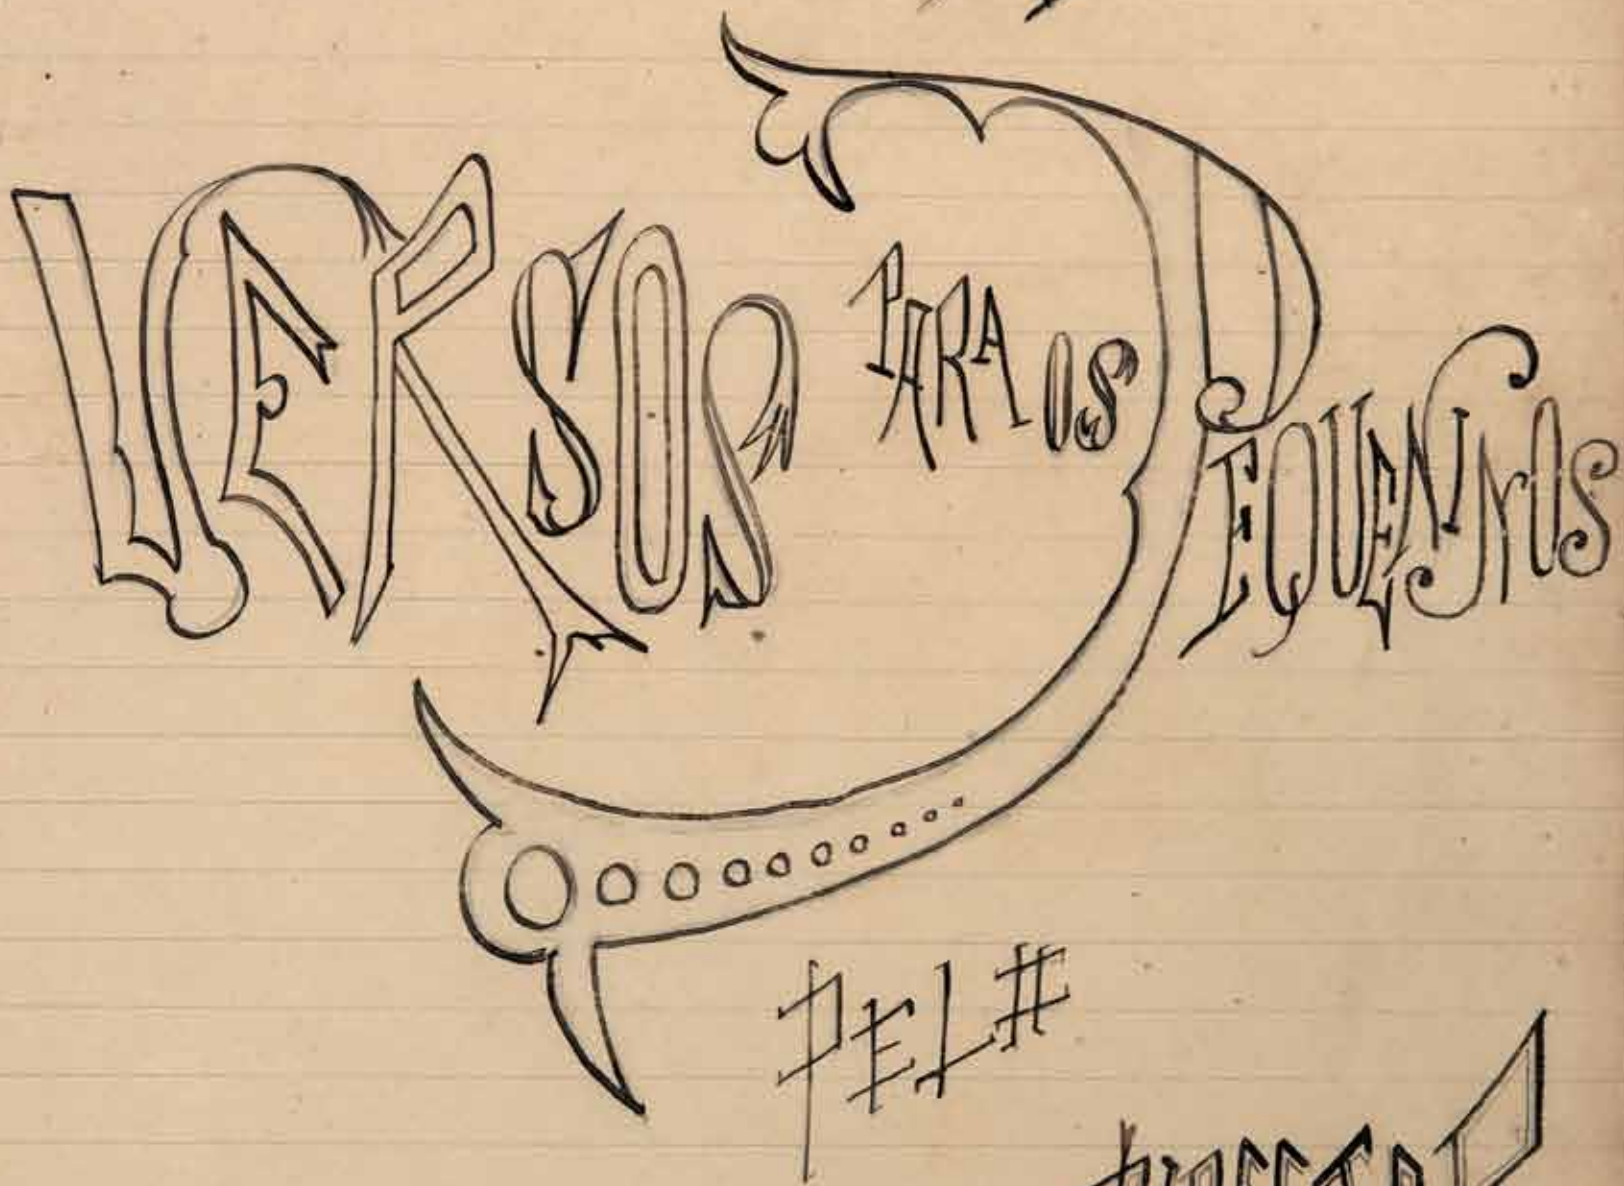 VERSOS PARA OS PEQUENINOS
PELA